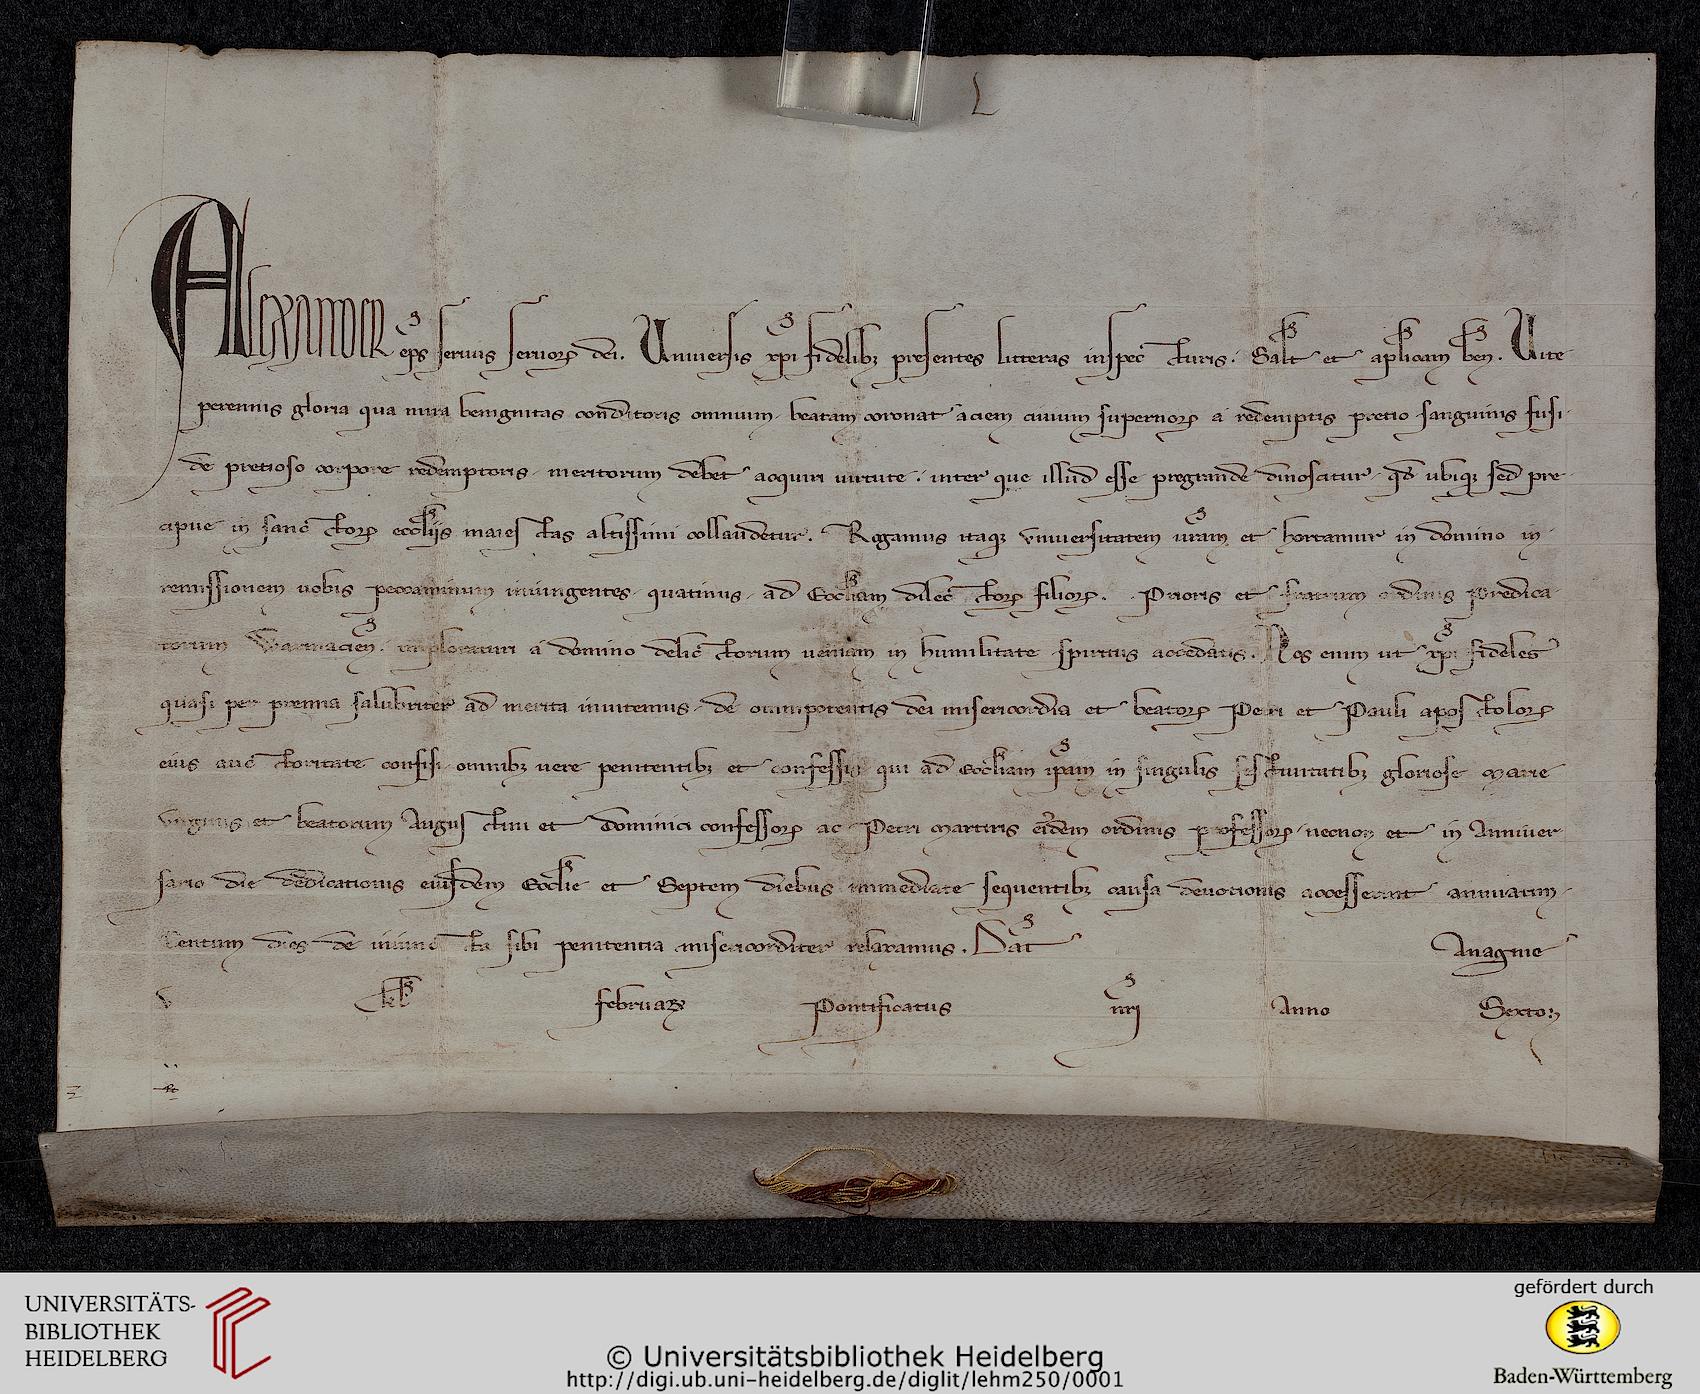 L
Alexander ep̄s seruus seruorꝝ dei. Uniuersis xp̄i fidelibꝫ presentes litteras inspecturis. Sal̄t et aplicam ben̄. Uite
perennis gloria qua mira benignitas conditoris omnium beatam coronat aciem ciuium supernorꝝ a redemptis pretio sanguinis fusi
de pretioso corpore redemptoris meritorum debet acquiri uirtute. inter que illud esse pregrande dinoscitur qd̄ ubiqꝫ sed pre
cipue in sanctorꝝ eccl̄iis maiestas altissimi collaudetur. Rogamus itaqꝫ uniuersitatem ur̄am et hortamur in domino in
remissionem uobis peccaminum iniungentes quatinus ad Eccl̄iam dilectorꝝ filiorꝝ. Prioris et fratrum ordinis predica
torum Warmacien̄. imploraturi a domino delictorum ueniam in humilitate spiritus accedatis. Nos enim ut xp̄i fideles
quasi per premia salubriter ad merita inuitemus de omnipotentis dei misericordia et beatorꝝ Petri et Pauli apostolorꝝ
eius auctoritate confisi omnibꝫ uere penitentibꝫ et confessis qui ad Eccl̄iam ip̄am in singulis festiuitatibꝫ gloriose Marie
uirginis et beatorum Augustini et Dominici confessorꝝ ac Petri martiris eiusdem ordinis professorꝝ necnon et in Anniuer
sario die dedicationis eiusdem Eccl̄ie et Septem diebus immediate sequentibꝫ causa deuotionis accesserint annuatim
Centum dies de iniuncta sibi penitentia misericorditer relaxamus. Dat̄ Anagnie
v kl̄ februarꝝ Pontificatus nr̄i Anno Sexto
UNIVERSITÄTS-
BIBLIOTHEK
HEIDELBERG
© Universitätsbibliothek Heidelberg
http://digi.ub.uni-heidelberg.de/diglit/lehm250/0001
gefördert durch
Baden-Württemberg